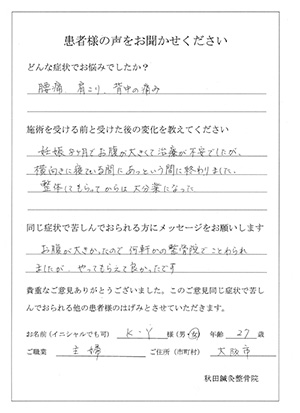 患者様の声をお聞かせください
どんな症状でお悩みでしたか?
腰痛 肩こり、背中の痛み
施術を受ける前と受けた後の変化を教えてください
妊娠8ヶ月でお腹が大きくて治療が不安でしたが、
横向きに寝ている間にあっという間に終わりました。
整体してもらってからは大分楽になった
同じ症状で苦しんでおられる方にメッセージをお願いします
お腹が大きかったので何軒かの整骨院でことわられ
ましたが、やってもらえて良かったです
貴重なご意見ありがとうございました。このご意見同じ症状で苦し
んでおられる他の患者様のはげみとさせていただきます。
お名前(イニシャルでも可) K-Y 様(男・女) 年齢 27 歳
ご職業 主婦 ご住所(市町村) 大阪市
秋田鍼灸整骨院